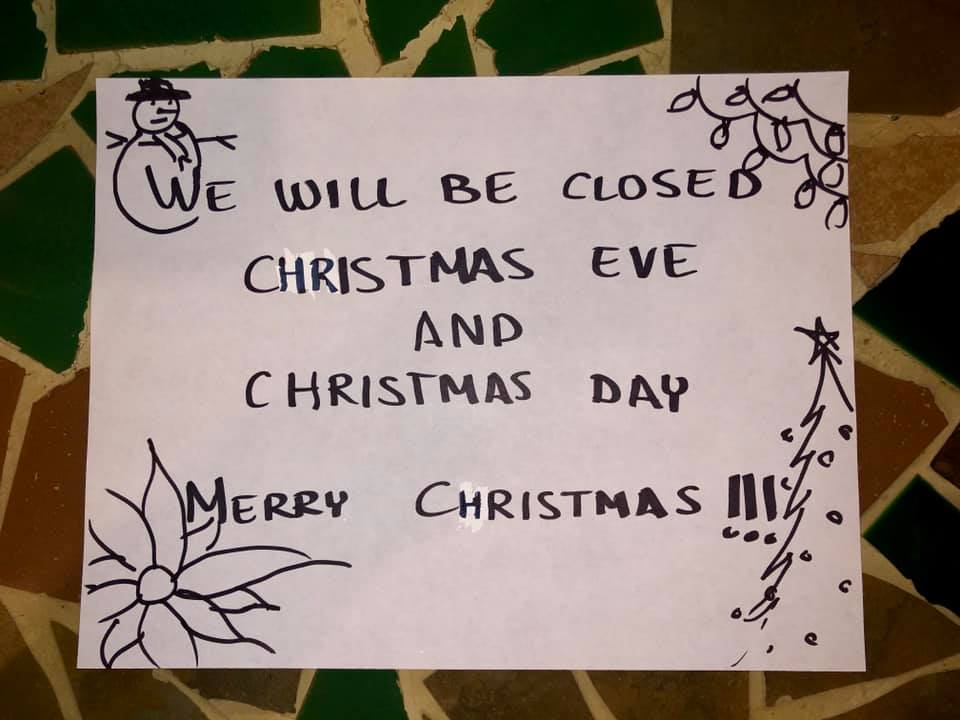 WE WILL BE CLOSED
CHRISTMAS EVE
AND
CHRISTMAS DAY
MERRY CHRISTMAS !!!